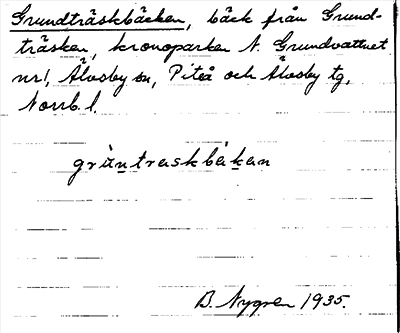 Grundträskbäcken, bäck från Grund-
träsken, kronoparken N. Grundvattnet
nr 1, Älvsby sn, Piteå och Älvsby tg,
Norrb. l.
gråntraskbäkan
B. Nygren 1935.